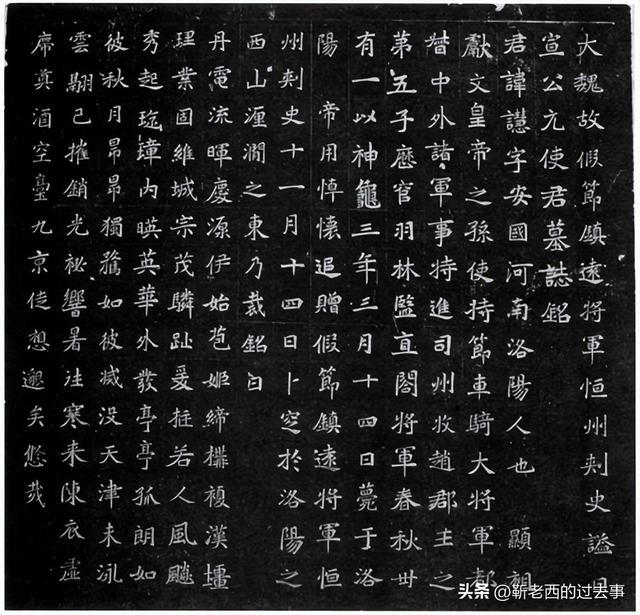 大魏故假節鎮遠將軍恒州刾史謚曰
宣公元使君墓誌銘
君諱譿字安國河南洛陽人也 顯祖
獻文皇帝之孫使持節車騎大將軍都
督中外諸軍事特進司州牧趙郡王之
第五子歷官羽林監直閤將軍春秋卅
有一以神龜三年三月十四日薨于洛
陽 帝用悼懷追贈假節鎮遠將軍恒
州刾史十一月十四日卜窆於洛陽之
西山瀍澗之東乃裁銘曰
丹電流暉慶源伊始苞姬締構複漢壃
理業固維城宗茂驎趾爰挺若人風飈
秀起琁璋內暎英華外發亭亭孤朗如
彼秋月昂昂獨騖如彼滅没天津未泳
雲翮已摧銷光祕響暑往寒来陳衣虛
席奠酒空臺九京徒想邈矣悠哉
头条 @靳老西的过去事